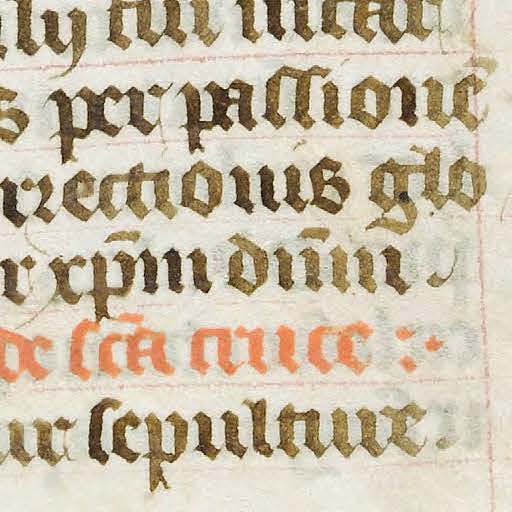 filij tui incar
s per passionē
rrectionis glo
r xp̄m dn̄m .
de sc̄a cruce :·
ur sepulture .